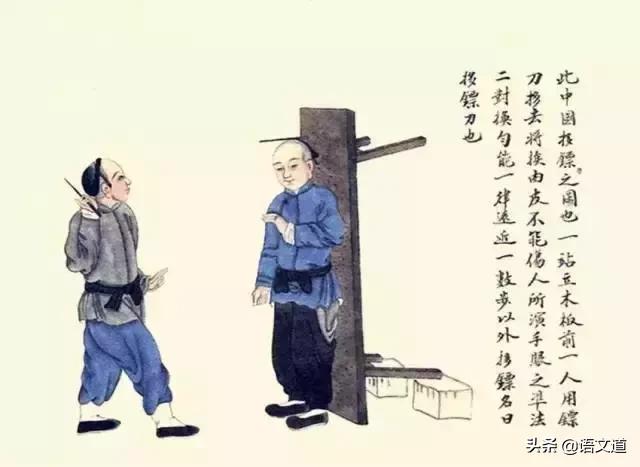 此中国扔鏢之圖也一站立木板前一人用鏢
刀扔去將挨肉皮不能傷人所演手眼之準法
二對換勻能一律遠近一数步以外扔鏢名曰
扔鏢刀也
头条 @语文道